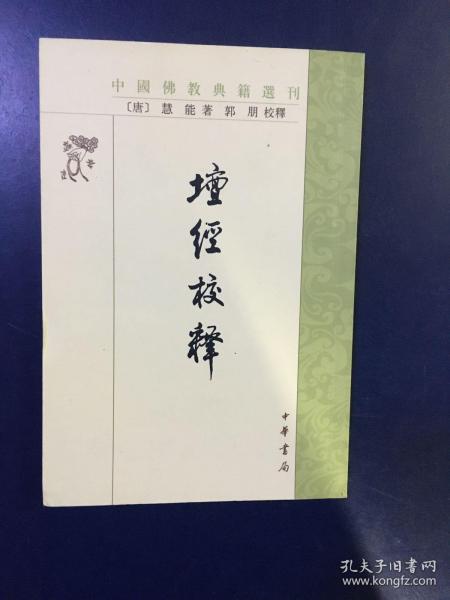 中國佛教典籍選刊
〔唐〕慧能著 郭朋校釋
壇經校釋
中華書局
孔夫子旧书网
www.kongfz.com